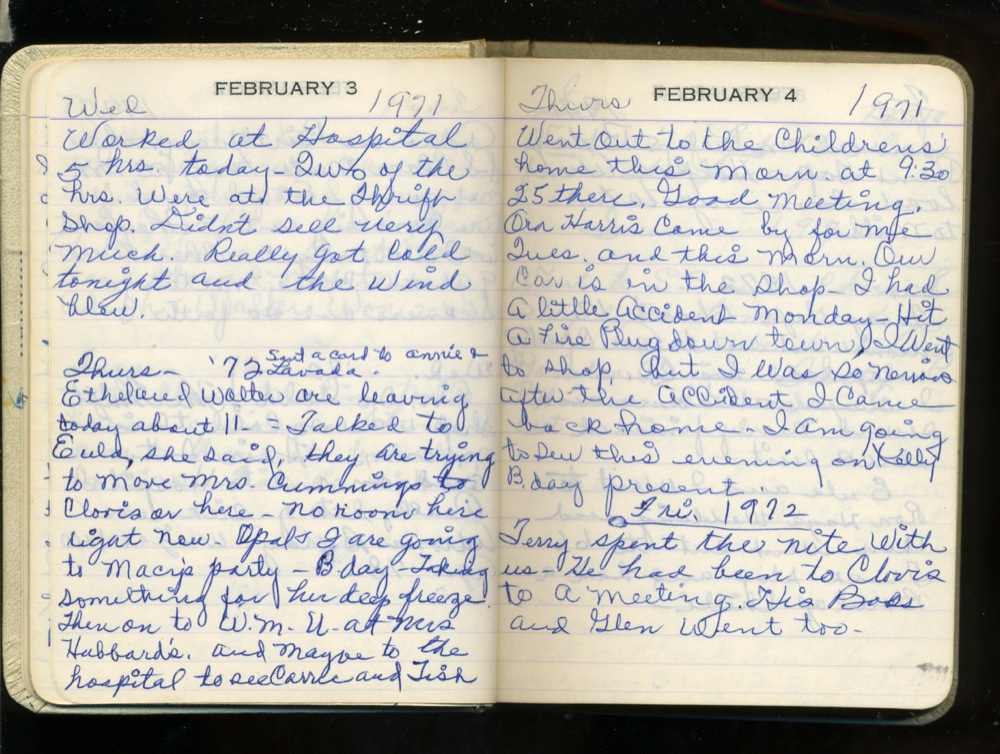 FEBRUARY 3
Wed 1971
Worked at Hospital
5 hrs. today - Two of the
hrs. Were at the Thrift
Shop. Didn't sell very
much. Really got cold
tonight and the Wind
blew.
Thurs - '72 Sent a card to annie &
Lavada.
Ethel and Walter are leaving
today about 11. = Talked to
Eula, she said, they are trying
to move Mrs. Cummings to
Clovis or here - no room here
right now. Opal & I are going
to Macy's party - B.day - Taking
something for her deep freeze.
Then on to W.M.U. at Mrs
Hubbard's. and Maybe to the
hospital to see Carrie and Tish
FEBRUARY 4
Thurs 1971
Went Out to the Childrens'
home this morn. at 9:30
25 there. Good Meeting.
Ora Harris Came by for me
Tues. and this morn. Our
Car is in the shop - I had
a little accident Monday - Hit
a Fire Plug down town, I Went
to shop, but I Was so nervous
after the accident I Came
back home - I am going
to Sew this evening on Kelly
B.day present.
Fri. 1972
Terry spent the nite With
us - He had been to Clovis
to a meeting. His Boss
and Glen Went too -